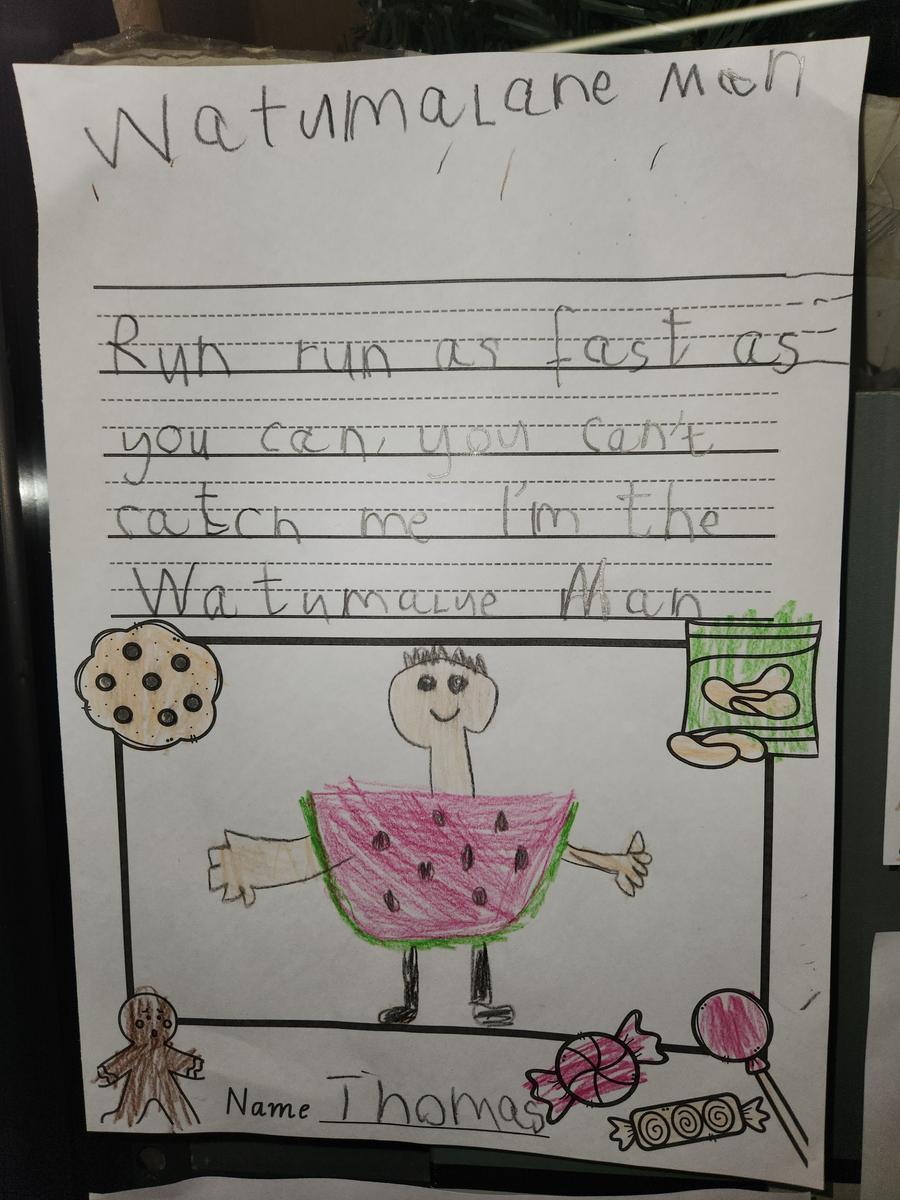 Watumalane Man
Run run as fast as
you can, you can't
catch me I'm the
Watumalue Man
Name Thomas